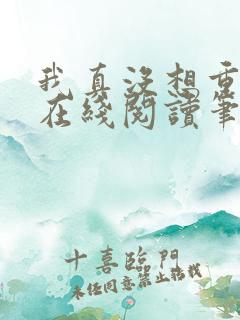 我真没想重
在綫閱讀筆
十喜臨門
未经同意禁止转载